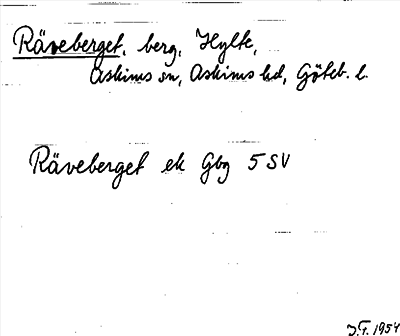 Räveberget, berg, Hylte,
Askims sn, Askims hd, Göteb. l.
Räveberget ek Gbg 5 SV
J.T. 1954